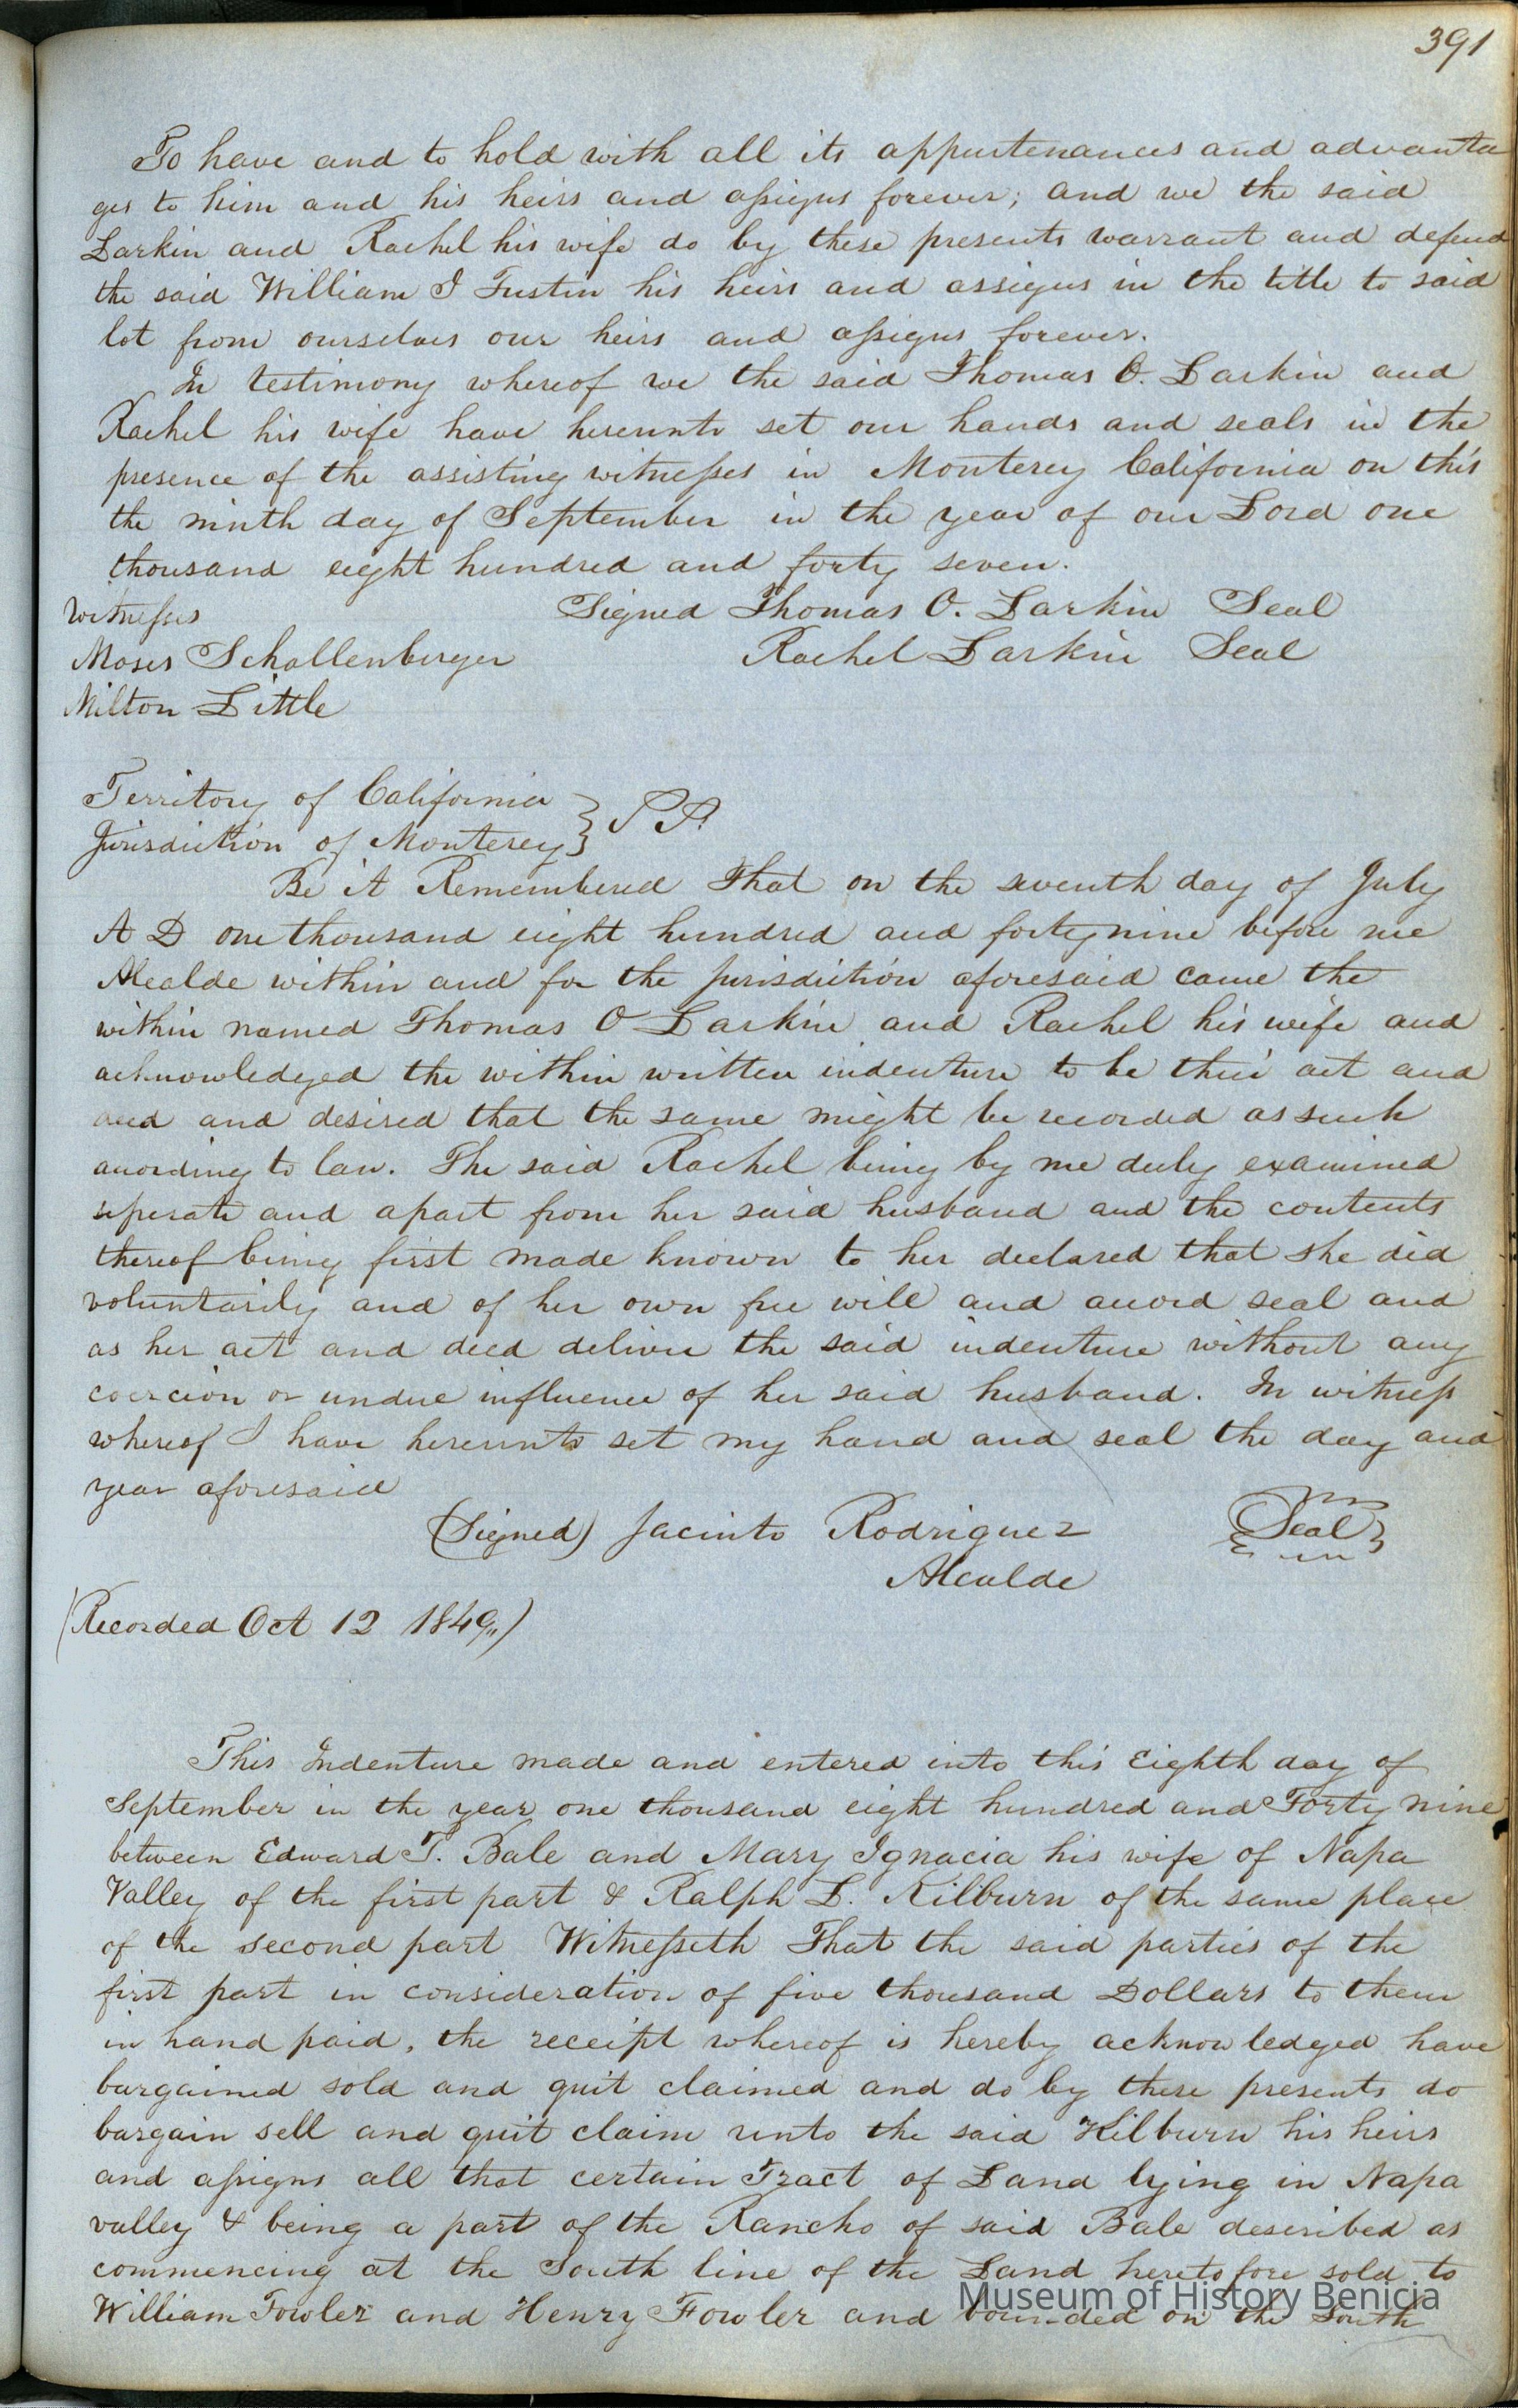 391
To have and to hold with all its appurtenances and advanta
ges to him and his heirs and assigns forever; and we the said
Larkin and Rachel his wife do by these presents warrant and defend
the said William I Tustin his heirs and assigns in the title to said
lot from ourselves our heirs and assigns forever.
In testimony whereof we the said Thomas O. Larkin and
Rachel his wife have hereunto set our hands and seals in the
presence of the assisting witnesses in Monterey California on this
the ninth day of September in the year of our Lord one
thousand eight hundred and forty seven.
Witnesses Signed Thomas O. Larkin Seal
Moses Schallenberger Rachel Larkin Seal
Milton Little
Territory of California
Jurisdiction of Monterey } SS.
Be it Remembered That on the seventh day of July
A D one thousand eight hundred and forty nine before me
Alcalde within and for the jurisdiction aforesaid came the
within named Thomas O Larkin and Rachel his wife and
acknowledged the within written indenture to be their act and
deed and desired that the same might be recorded as such
according to law. The said Rachel being by me duly examined
seperate and apart from her said husband and the contents
thereof being first made known to her declared that she did
voluntarily and of her own free will and accord seal and
as her act and deed deliver the said indenture without any
coercion or undue influence of her said husband. In witness
whereof I have hereunto set my hand and seal the day and
year aforesaid
(Signed) Jacinto Rodriguez Seal
Alcalde
(Recorded Oct 12 1849,,)
This Indenture made and entered into this Eighth day of
September in the year one thousand eight hundred and Forty nine
between Edward T. Bale and Mary Ignacia his wife of Napa
Valley of the first part & Ralph L. Kilburn of the same place
of the second part Witnesseth That the said parties of the
first part in consideration of five thousand Dollars to them
in hand paid, the receipt whereof is hereby acknowledged have
bargained sold and quit claimed and do by these presents do
bargain sell and quit claim unto the said Kilburn his heirs
and assigns all that certain Tract of Land lying in Napa
valley & being a part of the Rancho of said Bale described as
commencing at the South line of the Land heretofore sold to
William Fowler and Henry Fowler and bounded on the South
Museum of History Benicia